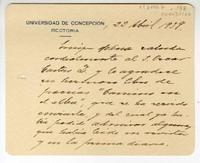 UNIVERSIDAD DE CONCEPCIÓN
RECTORIA
22 Abril, 1939
Enrique Molina saluda
cordialmente al S. Oscar
Castro Z. y le agradece
su hermoso libro de
poesías "Camino en
el alba", que se ha servido
enviarle y del cual ya ha
podido admirar algunas
que había leido en revistas
y en la prensa diaria.